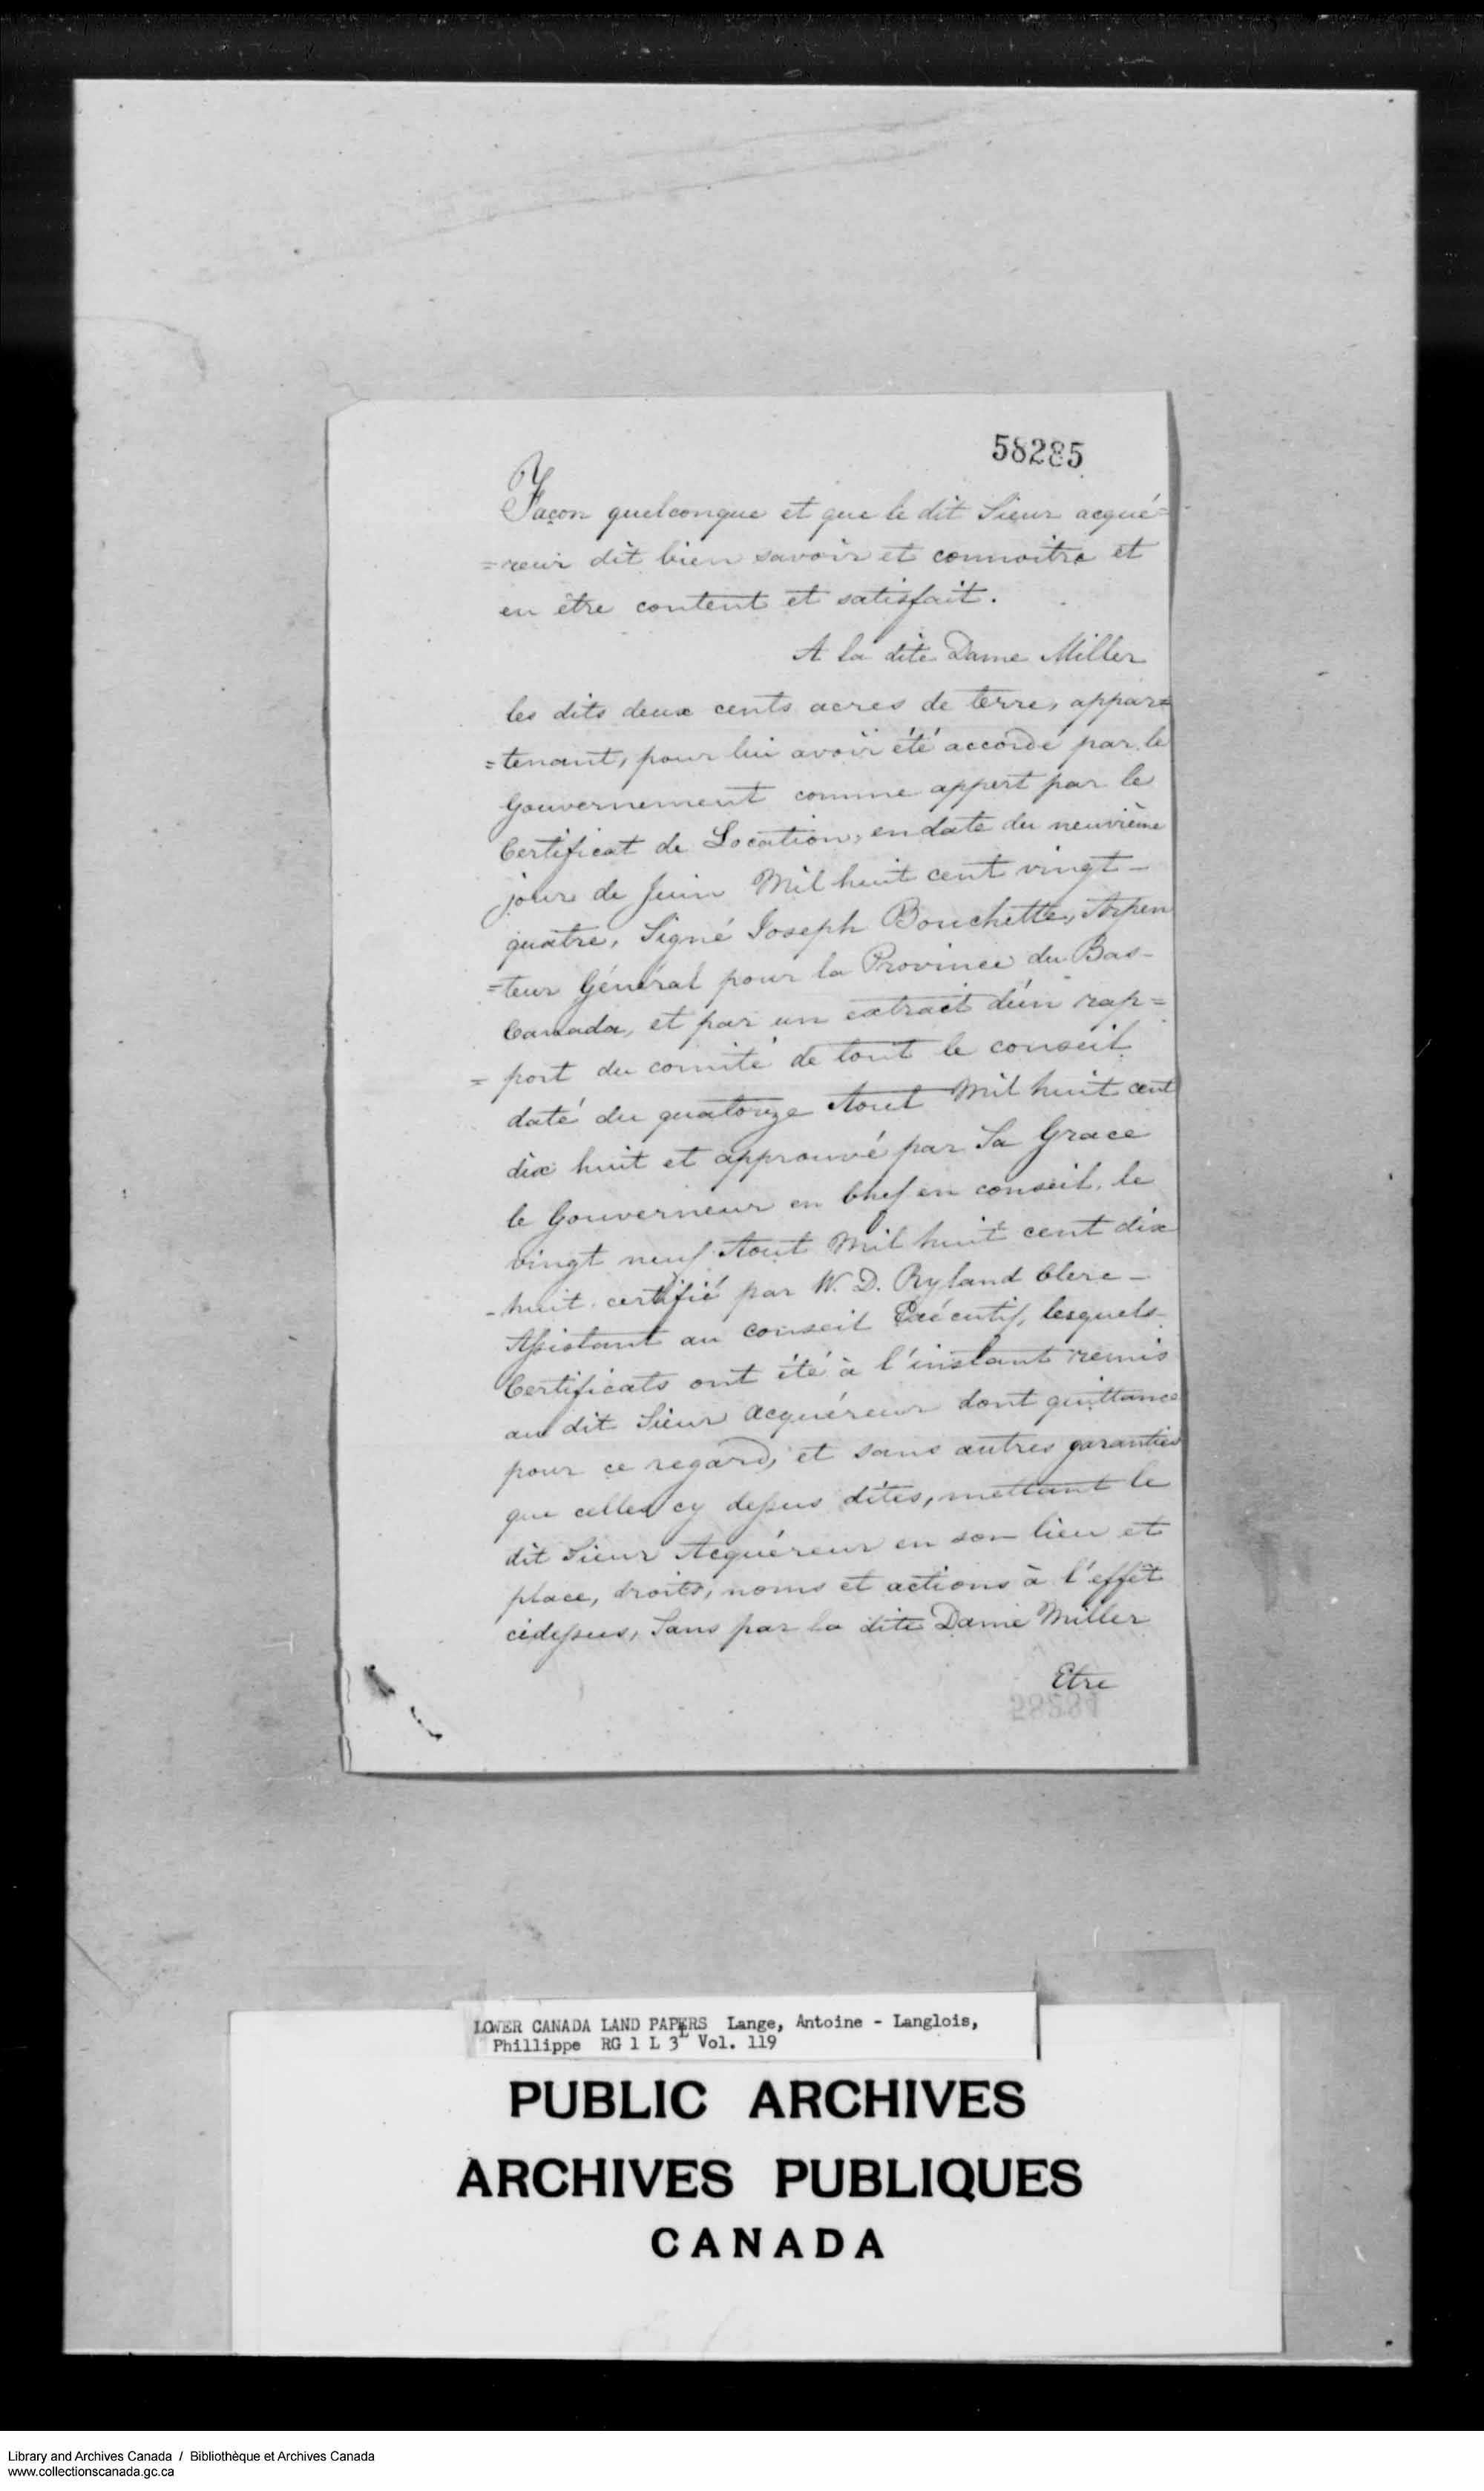 58285
Façon quelconque et que le dit Sieur acqué=
=reur dit bien savoir et connoitre et
en être content et satisfait.
A la dite Dame Miller
les dits deux cents acres de terre, appar=
=tenant, pour lui avoir été accordé par le
Gouvernement comme appert par le
Certificat de Location, en date du neuvième
jour de Juin Mil huit cent vingt-
quatre, Signé Joseph Bouchette, Arpen
=teur Général pour la Province du Bas-
Canada, et par un extrait d'un rap=
=port du comité de tout le conseil
daté du quatorze Aout Mil huit cent
dix huit et approuvé par Sa Grace
le Gouverneur en Chef en conseil, le
vingt neuf Aout Mil huit cent dix
-huit, certifié par W. D. Ryland Clerc-
Assistant au conseil Exécutif, lesquels
Certificats ont été à l'instant remis
au dit Sieur Acquéreur dont quittance
pour ce regard, et sans autres garanties
que celles cy dessus dites, mettant le
dit Sieur Acquéreur en son lieu et
place, droits, noms et actions à l'effet
cidessus, Sans par la dite Dame Miller
Etre
58284
LOWER CANADA LAND PAPERS Lange, Antoine - Langlois,
Phillippe RG 1 L 3L Vol. 119
PUBLIC ARCHIVES
ARCHIVES PUBLIQUES
CANADA
Library and Archives Canada / Bibliothèque et Archives Canada
www.collectionscanada.gc.ca